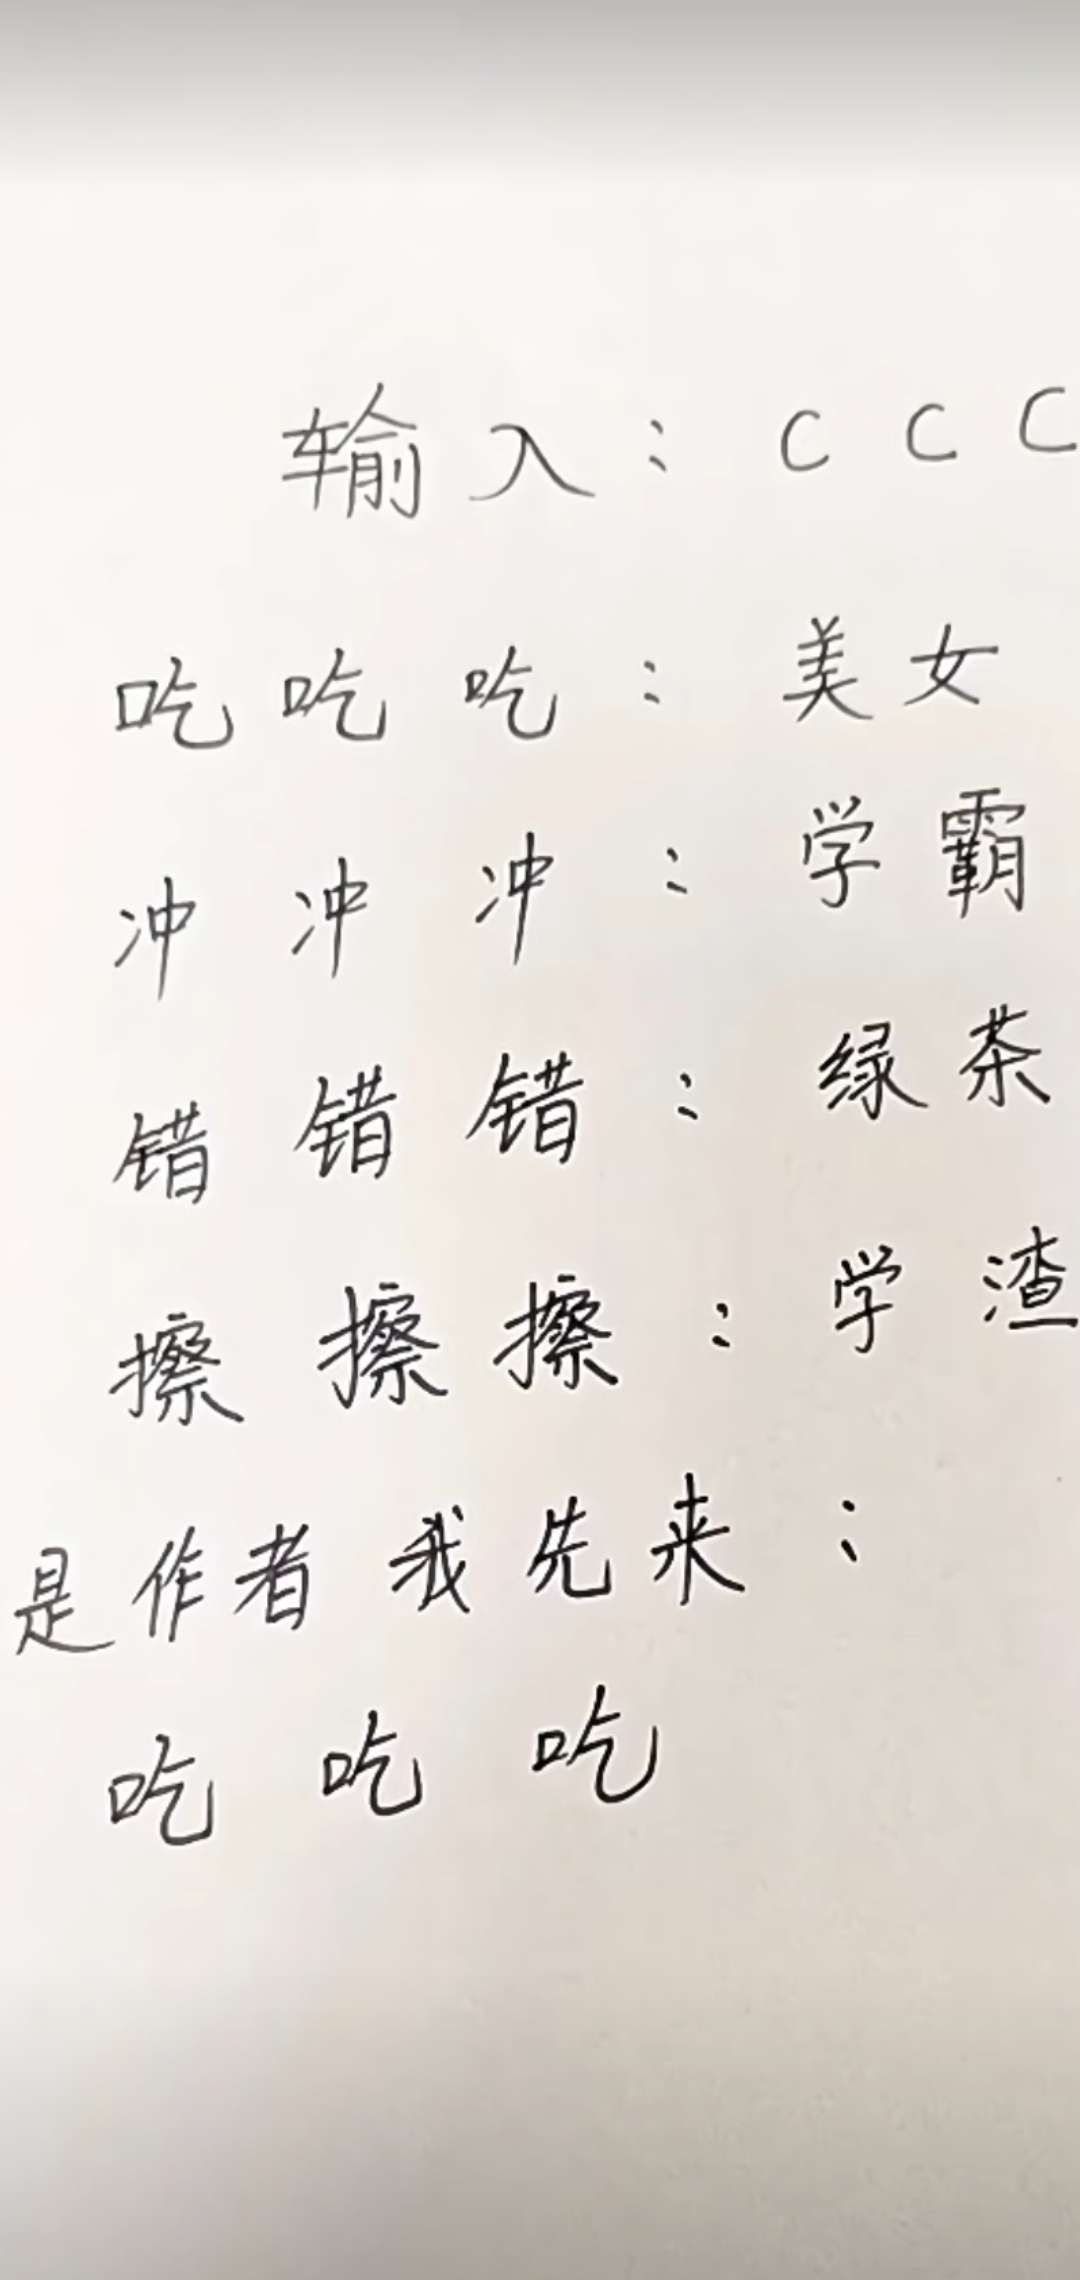 输入：CCC
吃吃吃：美女
冲冲冲：学霸
错错错：绿茶
擦擦擦：学渣
是作者我先来：
吃吃吃